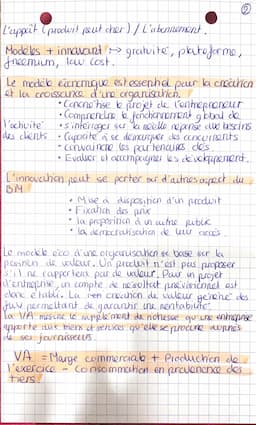 ②
L'appât (produit peut cher) / L'abonnement.
Modèles + innovant → gratuité, plateforme,
freemium, low cost.
Le modèle économique est essentiel pour la création
et la croissance d'une organisation.
• Concrétise le projet de l'entrepreneur
• Comprendre le fonctionnement global de
l'activité • s'interroger sur la réelle réponse aux besoins
des clients • Capacité à se démarquer des concurrents
• convaincre les partenaires clés.
• Evaluer et accompagner les développement.
L'innovation peut se porter sur d'autres aspect du
BM
• Mise à disposition d'un produit
• Fixation des prix
• la proposition à un autre public
• la démocratisation de leur accès
Le modèle éco d'une organisation se base sur la
position de valeur. Un produit n'est pas proposer
s'il ne rapportera pas de valeur. Pour un projet
d'entreprise, un compte de résultat prévisionnel est
donc établi. La création de valeur génère des
flux permettant de garantir une rentabilité.
La VA mesure le supplément de richesse qu'une entreprise
apporte aux biens et services qu'elle se procure auprès
de ses fournisseurs.
VA = Marge commerciale + Production de
l'exercice - Consommation en provenance des
tiers